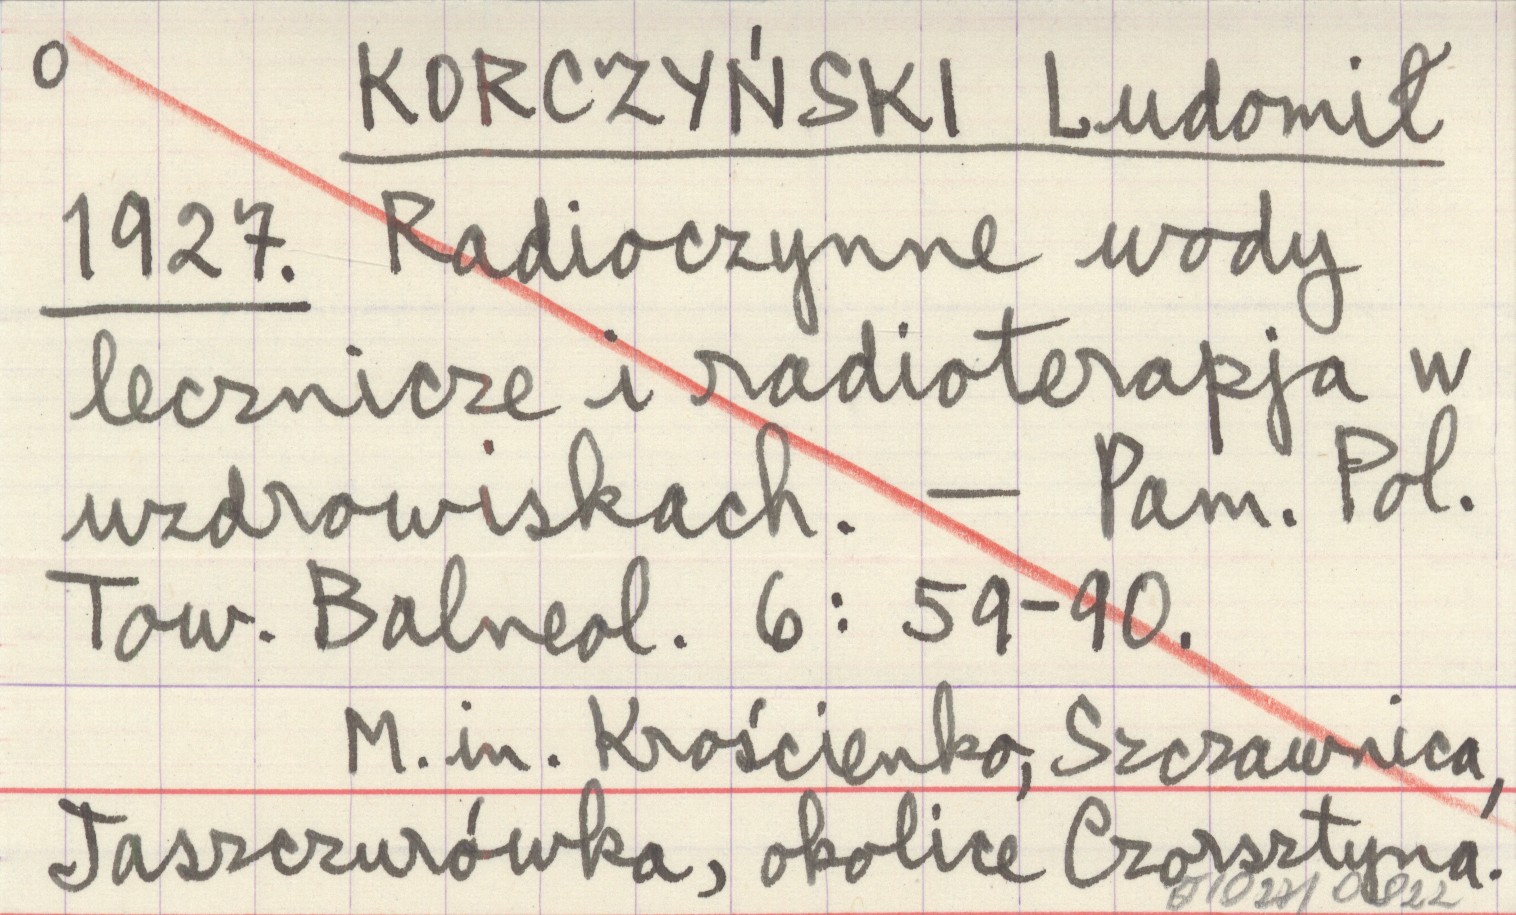 o KORCZYŃSKI Ludomił
1927. Radioczynne wody
lecznicze i radioterapja w
uzdrowiskach. — Pam. Pol.
Tow. Balneol. 6: 59-90.
M. in. Krościenko, Szczawnica,
Jaszczurówka, okolice Czorsztyna.